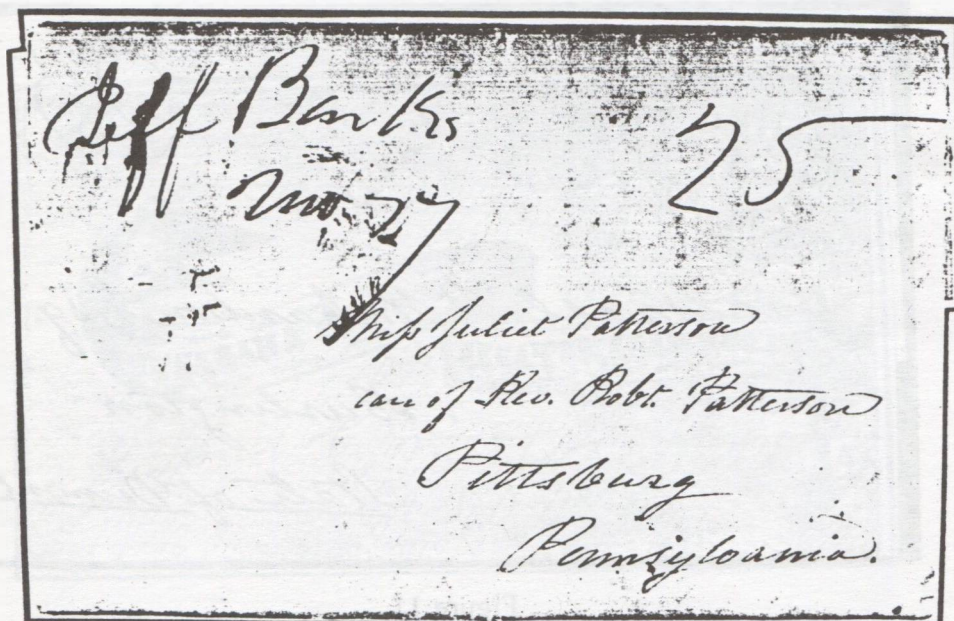 Jeff Banks 25
Miss Juliet Patterson
care of Rev. Robt. Patterson
Pittsburg
Pennsylvania.